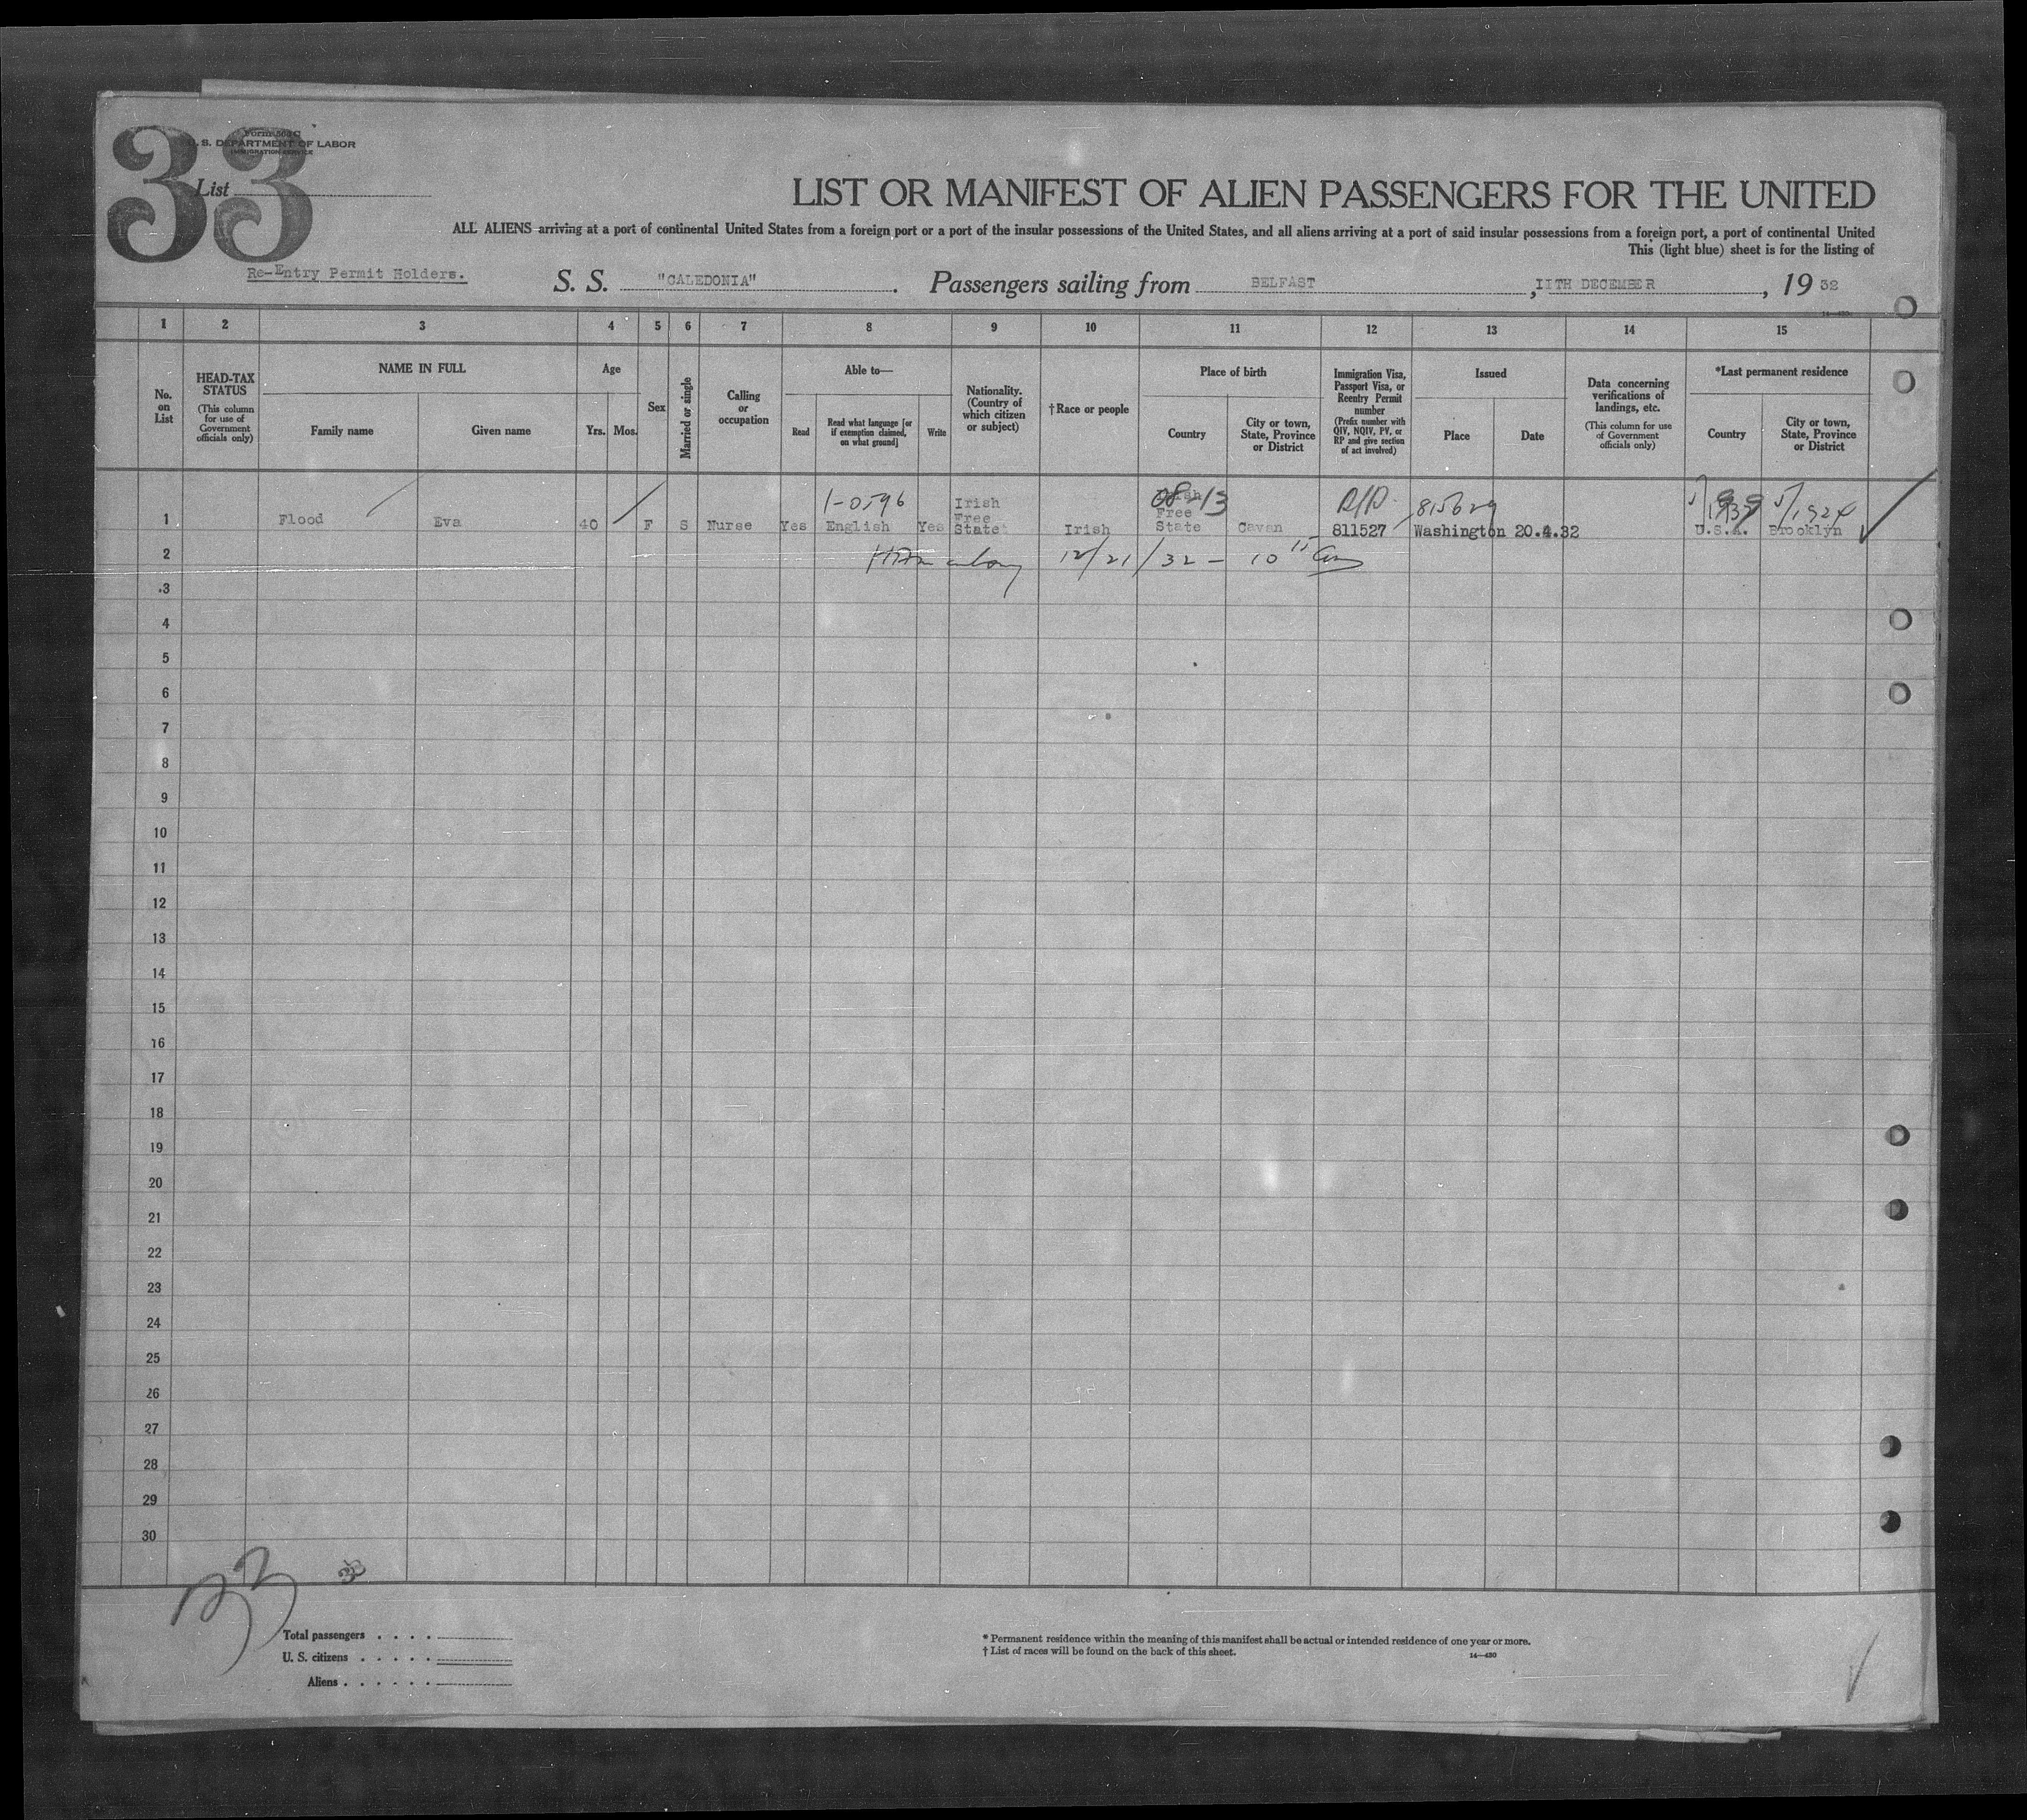 33
Form 500 C
U. S. DEPARTMENT OF LABOR
IMMIGRATION SERVICE
List
LIST OR MANIFEST OF ALIEN PASSENGERS FOR THE UNITED
ALL ALIENS arriving at a port of continental United States from a foreign port or a port of the insular possessions of the United States, and all aliens arriving at a port of said insular possessions from a foreign port, a port of continental United
This (light blue) sheet is for the listing of
Re-Entry Permit Holders.
S. S. "CALEDONIA". Passengers sailing from BELFAST, IITH DECEMBER, 19 32
14—430
1 2 3 4 5 6 7 8 9 10 11 12 13 14 15
No. on List
HEAD-TAX STATUS (This column for use of Government officials only)
NAME IN FULL
Family name Given name
Age
Yrs. Mos.
Sex
Married or single
Calling or occupation
Able to—
Read
Read what language [or if exemption claimed, on what ground]
Write
Nationality. (Country of which citizen or subject)
†Race or people
Place of birth
Country
City or town, State, Province or District
Immigration Visa, Passport Visa, or Reentry Permit number (Prefix number with QIV, NQIV, PV, or RP and give section of act involved)
Issued
Place Date
Data concerning verifications of landings, etc. (This column for use of Government officials only)
*Last permanent residence
Country
City or town, State, Province or District
1-0596 08-13 R/P 815629 5/1924
1 Flood Eva 40 F S Nurse Yes English Yes Irish Free State Irish Irish Free State Cavan 811527 Washington 20.4.32 U.S.A. Brooklyn
2 12/21/32 - 10 15 am
3
4
5
6
7
8
9
10
11
12
13
14
15
16
17
18
19
20
21
22
23
24
25
26
27
28
29
30
33
33
Total passengers . . . .
U. S. citizens . . . . .
Aliens . . . . . .
* Permanent residence within the meaning of this manifest shall be actual or intended residence of one year or more.
† List of races will be found on the back of this sheet.
14—430